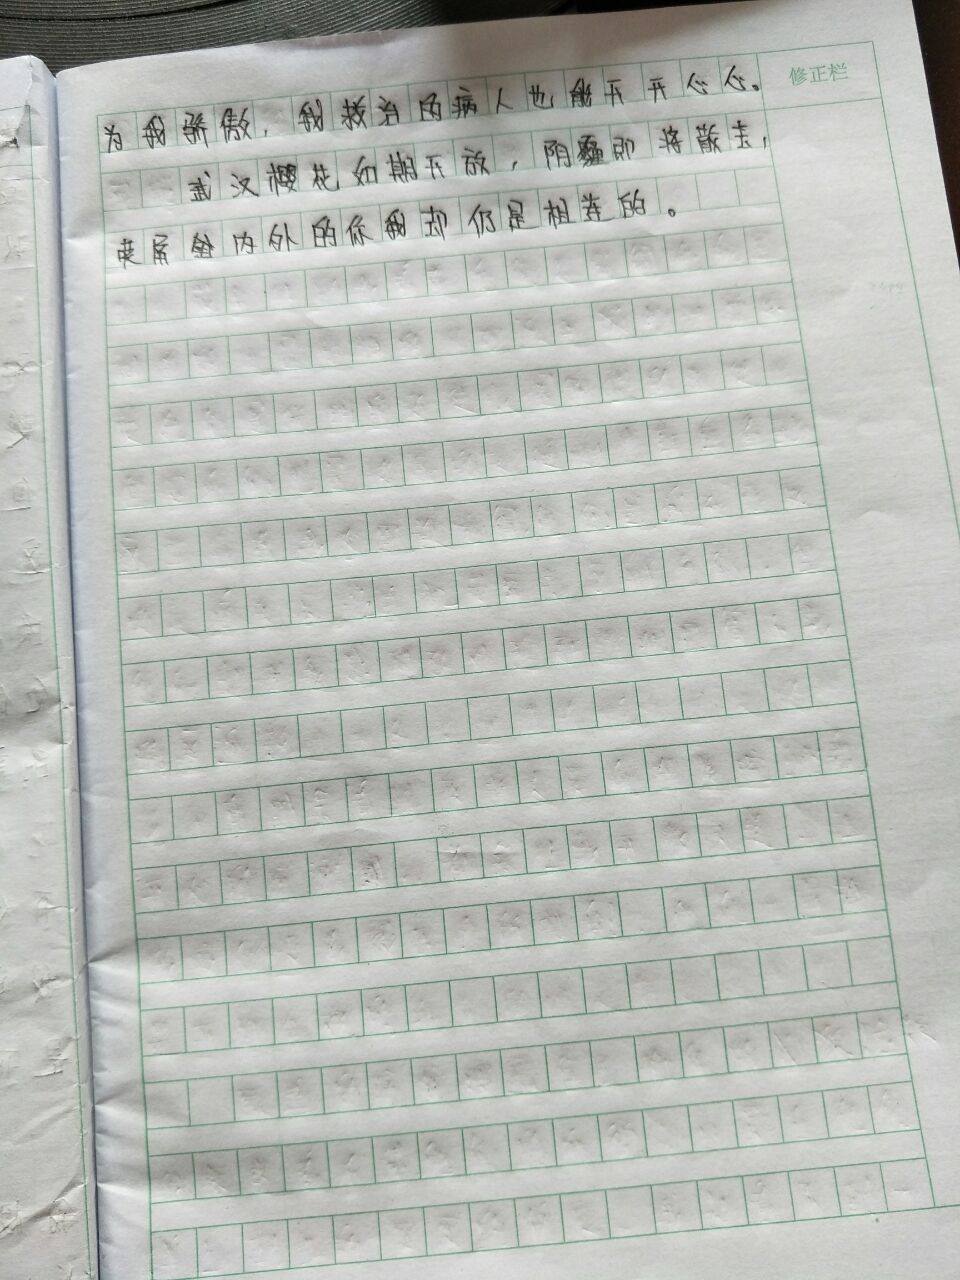 修正栏
为我骄傲，我救治的病人也能开开心心。
武汉樱花如期开放，阴霾即将散去，
内外的你我却仍是相连的。